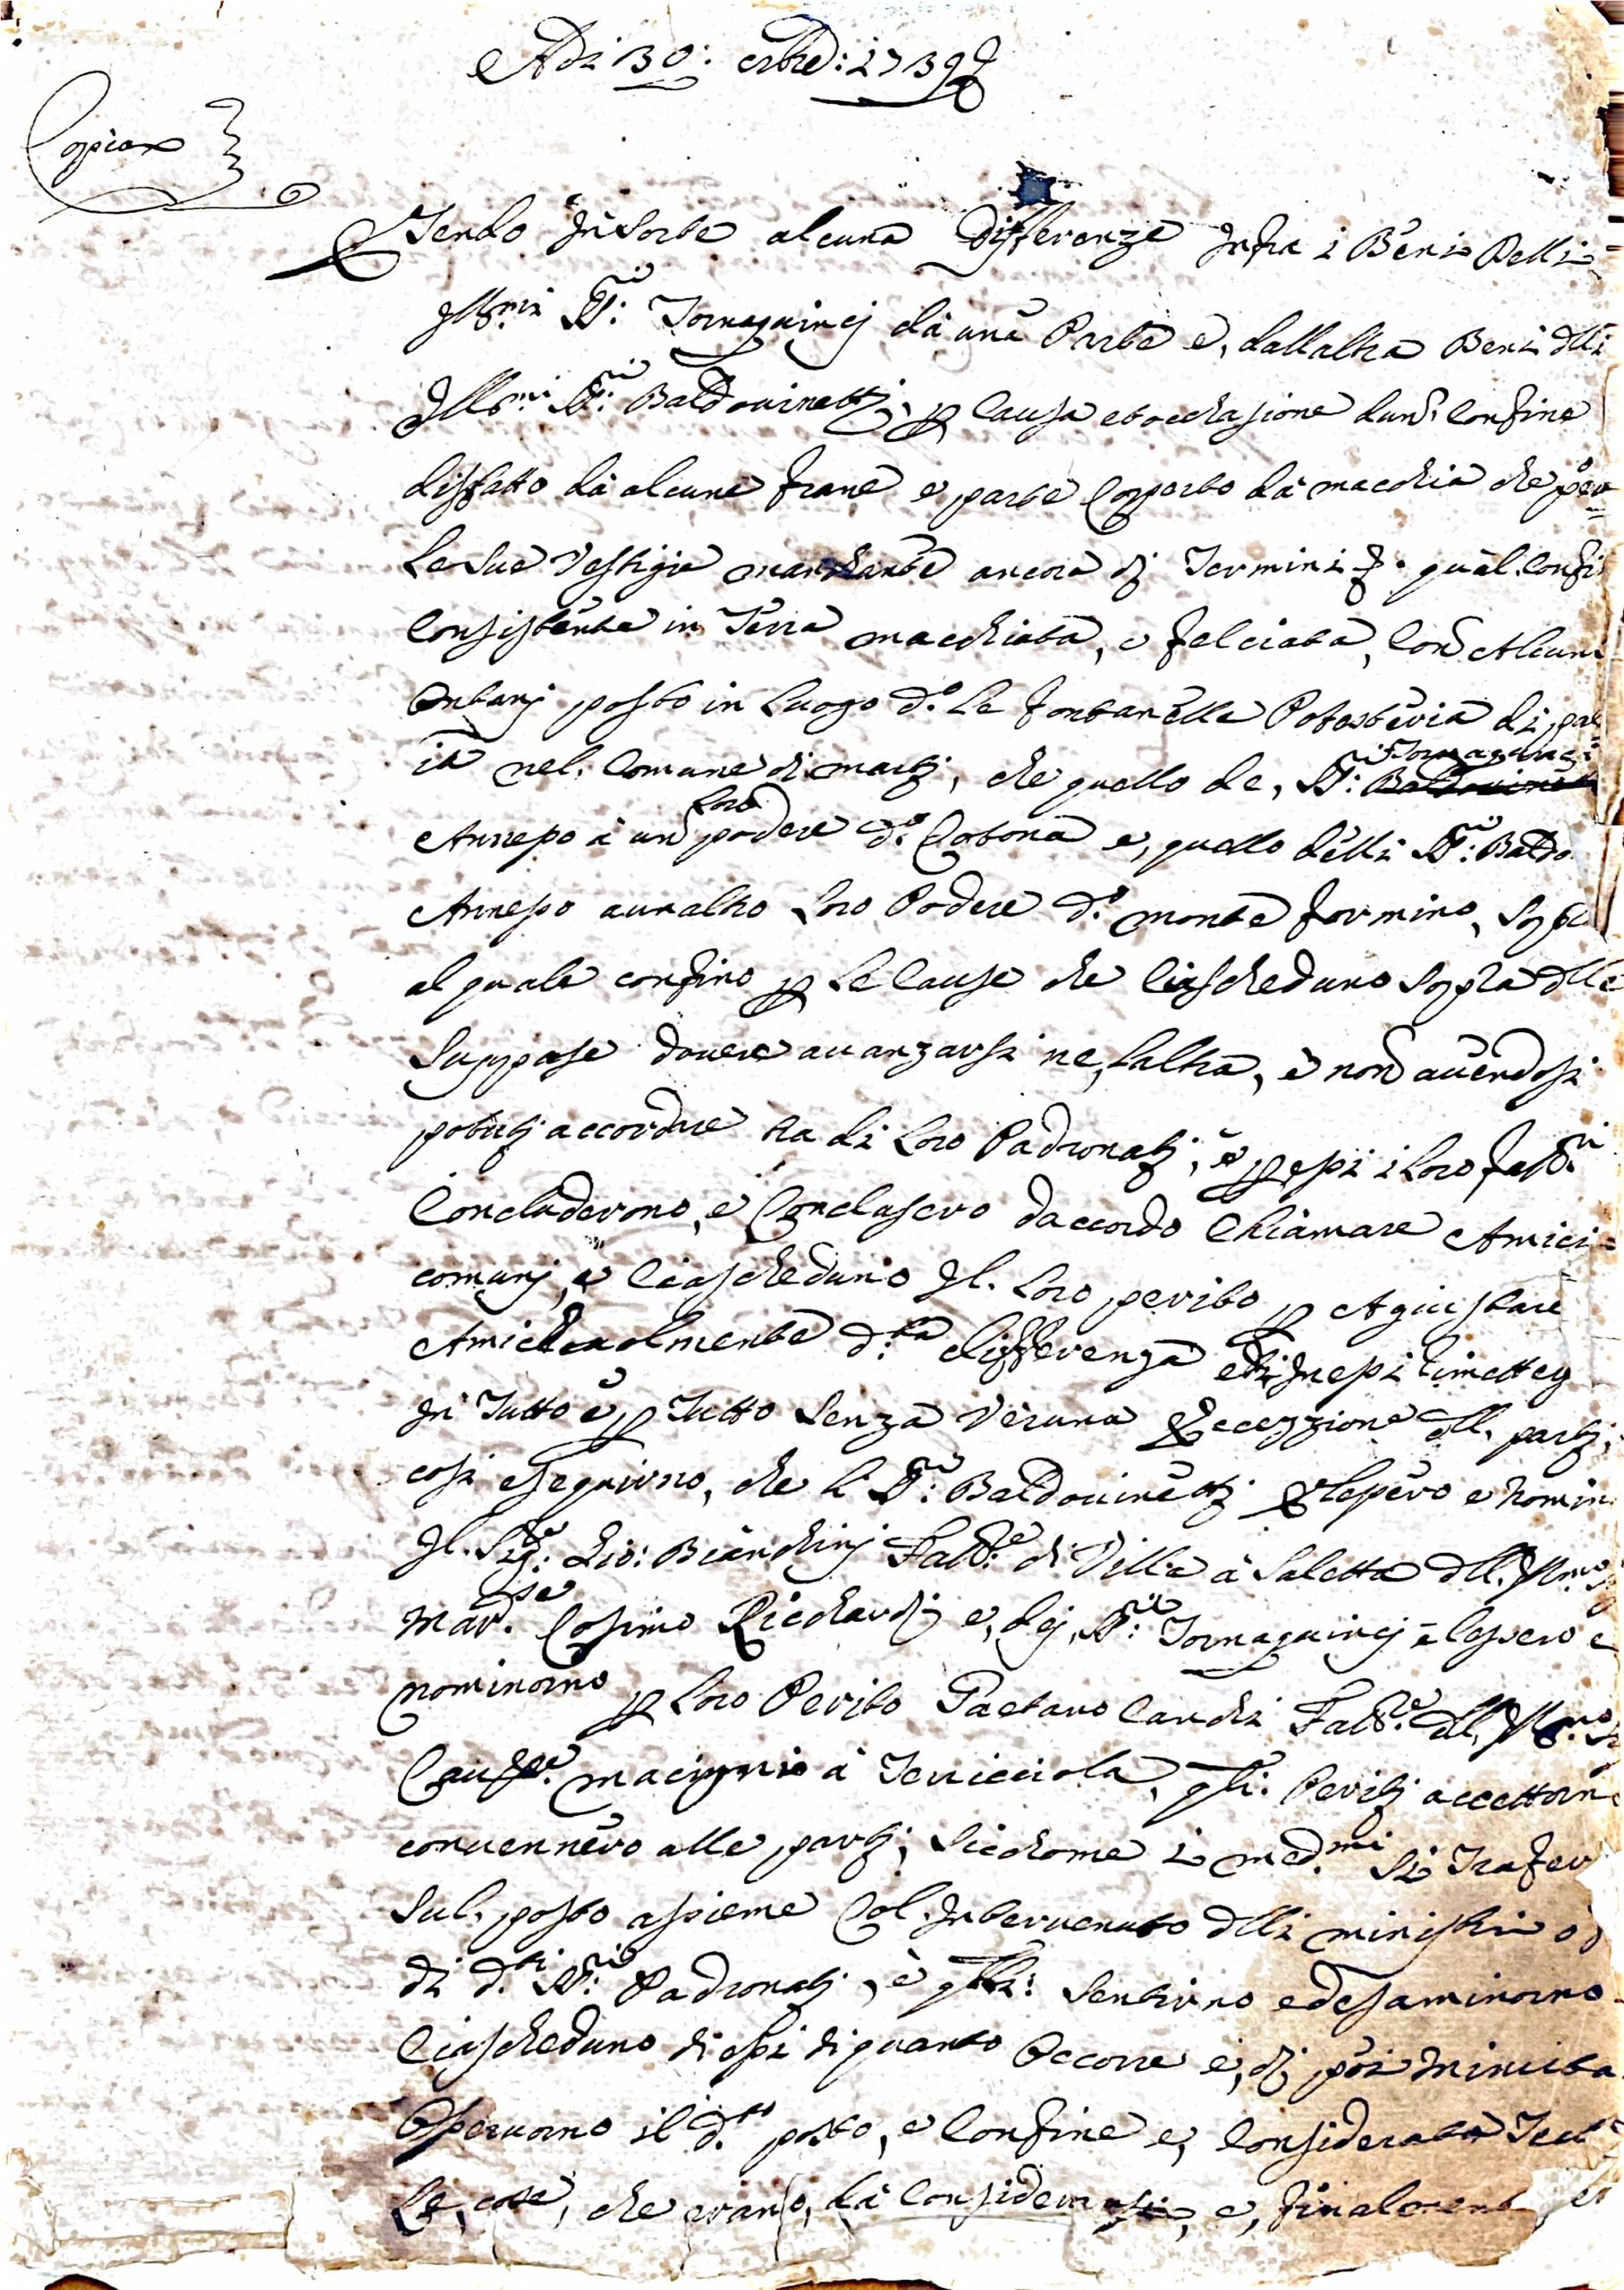 Adi 30: 1739
Copia
Sendo insorte alcuna differenze infra i Beni Delli
Ill.mi SS.ri Tornaquincj da una Parte e, dallaltra Beni dlli
Ill.mi SS.ri Baldovinettj, p causa et occhasione dun Confine
disfatto da alcune frane e parte Coperto da macchia che per
Le sue Vestigie manchante ancora dj Terminj qual Confi
Consistente in Terra macchiata, e felciata, con Alcuni
Ontanj posto in Luogo d.o Le fontanelle Potesteria di pal
ia nel Comune di martj, che quello de, SS.ri Tornaquincj
Annesso à un Loro podere d.o Cotona e, quello delli SS.ri Baldo
Annesso aunaltro Loro Podere d.o monte formino, Sopra
al quale confino p Le Cause che Ciascheduno Sopra dlle
Suppose dovere avanzarsi ne, laltra, e non avendosi
potutj accordare tra di Loro Padronatj, e p essi i Loro fatt.ri
Concluderono, e Conclusero daccordo Chiamare Amici
comunj, e Ciascheduno Il Loro perito p Agiustare
Amichevolmente d.ta differenza et in essi rimettej
in Tutto e p Tutto Senza Veruna Eccezzione dll. partj,
così eseguirno, che li SS.ri Baldovinettj Elessero e nomin
Il Sig.re Gio: Bianchinj Fatt.re di Villa à Saletta dll. Ill.mo
Mar.se Cosimo Ricchardj e, dej, SS.ri Tornaquincj elessero e
nominorno p Loro Perito Gaetano Candi Fatt.re dll. Ill.mo
Cau.re à Terricciola, qli. Peritj accettorn
convennero alle partj, Sicchome i med.mi Si Trasfer
Sul posto assieme Col Intervenuto dlli ministri
di d.ti SS.ri Padronatj, e qli: Sentirno ed esaminorno
Ciascheduno di essi di quanto Occorre e, dj poi
Osservorno il d.to posto, e Confine e, Considerata
Le, cose, che erano, da Considerarsi, e, finalment